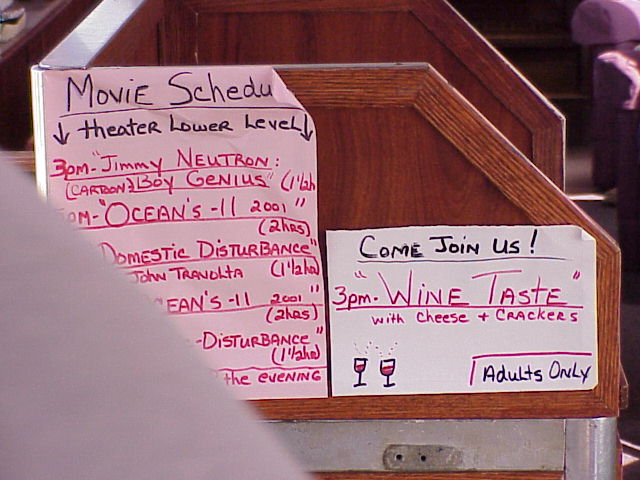 Movie Schedu
theater Lower Level
3pm-"Jimmy Neutron:
(CARTOON) BOY GENIUS" (1½h
pm-"OCEAN'S -11 2001"
(2hrs)
DOMESTIC DISTURBANCE"
JOHN TRAVOLTA (1½h
EAN'S -11 2001"
(2hrs)
-DISTURBANCE"
(1½h
the evening
COME JOIN US!
3pm-"WINE TASTE"
with cheese + CRACKERS
Adults ONLY